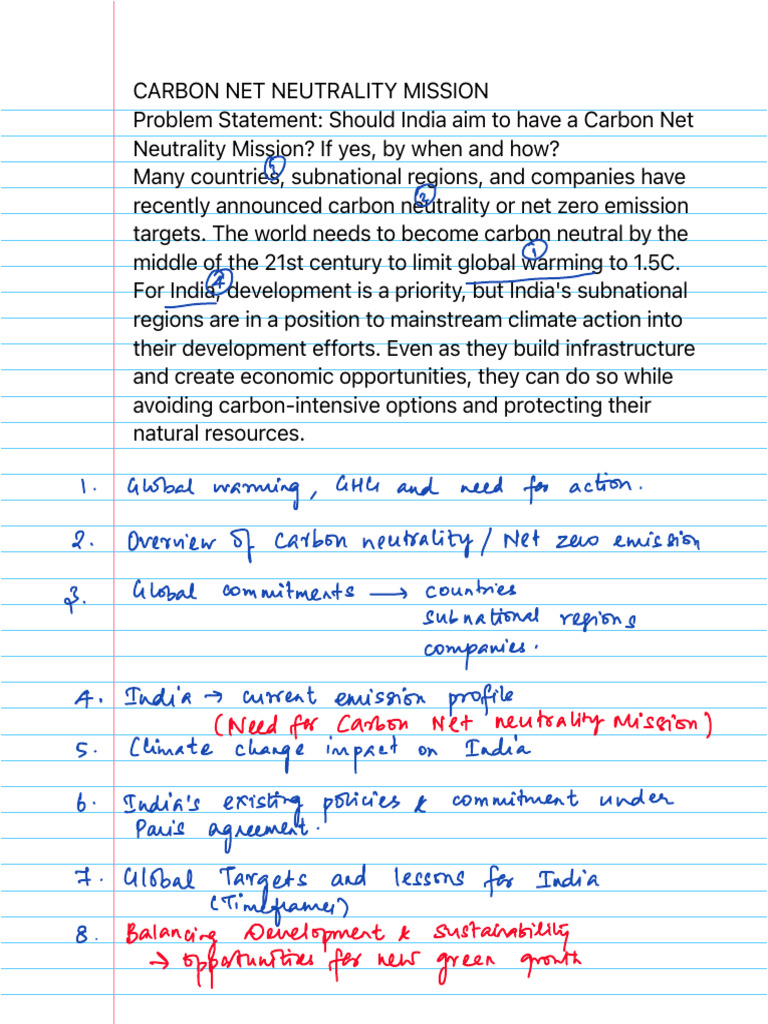 CARBON NET NEUTRALITY MISSION
Problem Statement: Should India aim to have a Carbon Net
Neutrality Mission? If yes, by when and how?
Many countries, subnational regions, and companies have
recently announced carbon neutrality or net zero emission
targets. The world needs to become carbon neutral by the
middle of the 21st century to limit global warming to 1.5C.
For India, development is a priority, but India's subnational
regions are in a position to mainstream climate action into
their development efforts. Even as they build infrastructure
and create economic opportunities, they can do so while
avoiding carbon-intensive options and protecting their
natural resources.
1. Global warming, GHG and need for action.
2. Overview of Carbon neutrality / Net zero emission
3. Global commitments → countries
subnational regions
companies.
4. India → current emission profile
(Need for Carbon Net neutrality Mission)
5. Climate change impact on India
6. India's existing policies & commitment under
Paris agreement.
7. Global Targets and lessons for India
(Timeframes)
8. Balancing Development & Sustainability
→ opportunities for new green growth